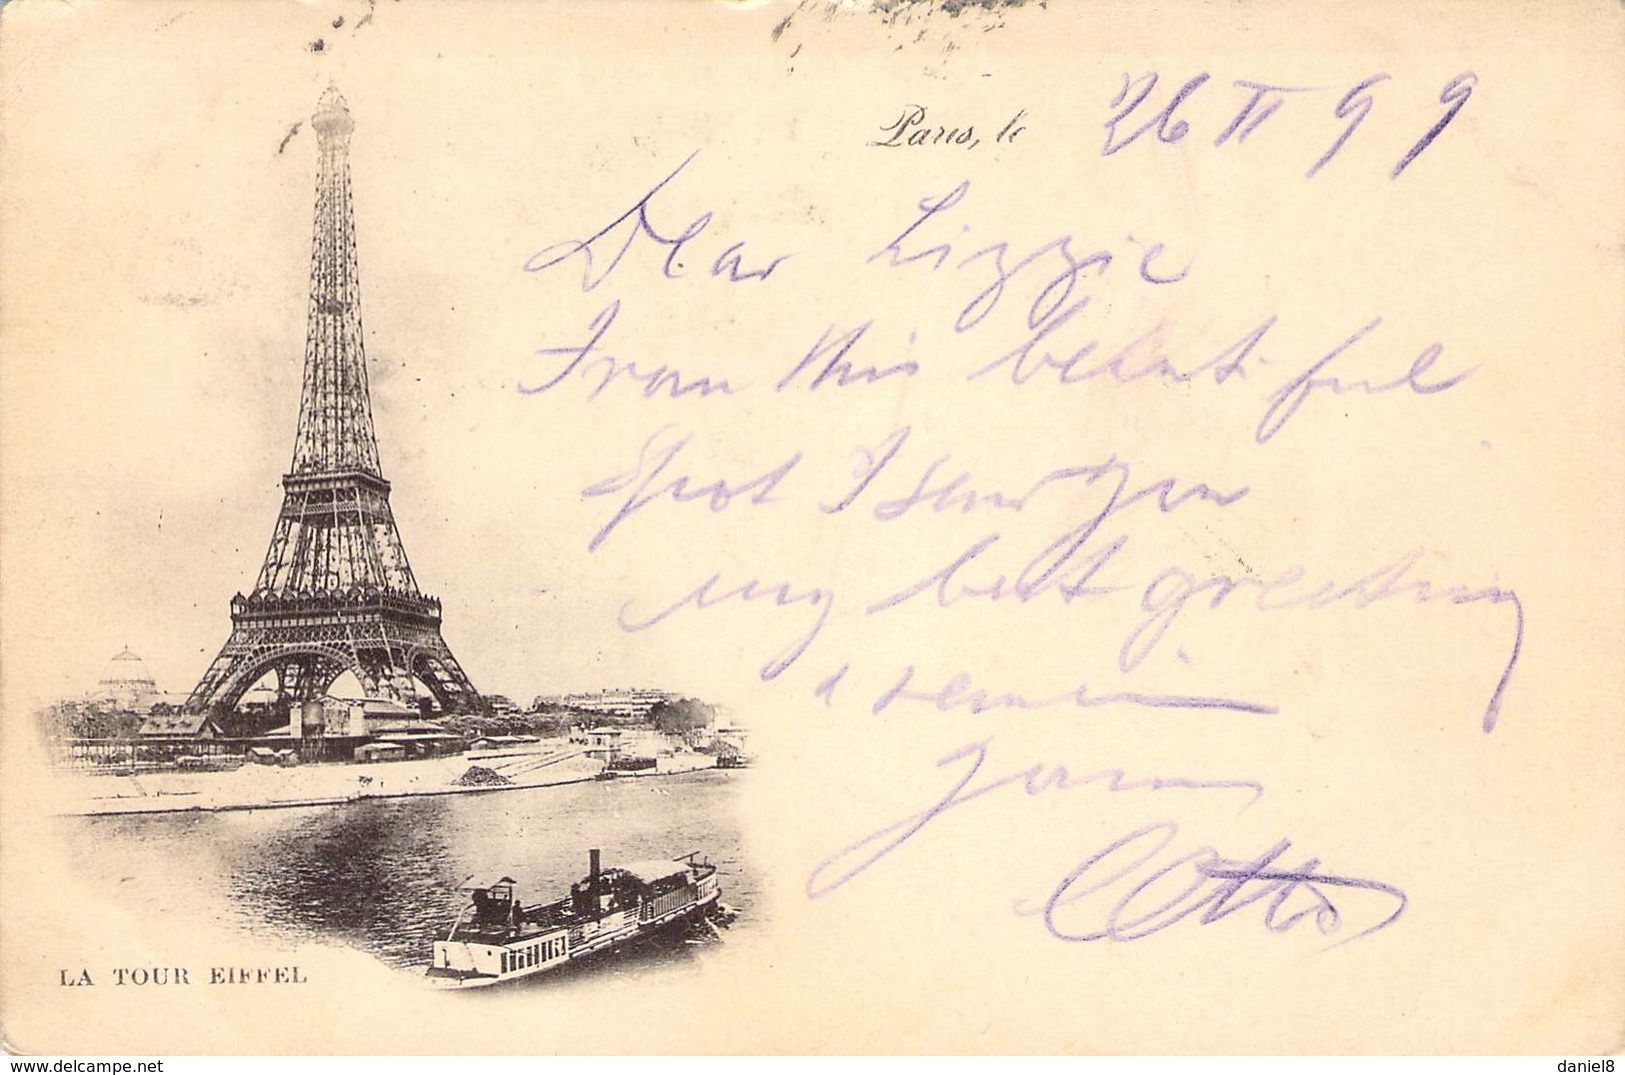 Paris, le 26 II 99
Dear Lizzie
From this beautiful
spot I send you
my best greetings
& remain
yours
Otto
LA TOUR EIFFEL
www.delcampe.net
daniel8